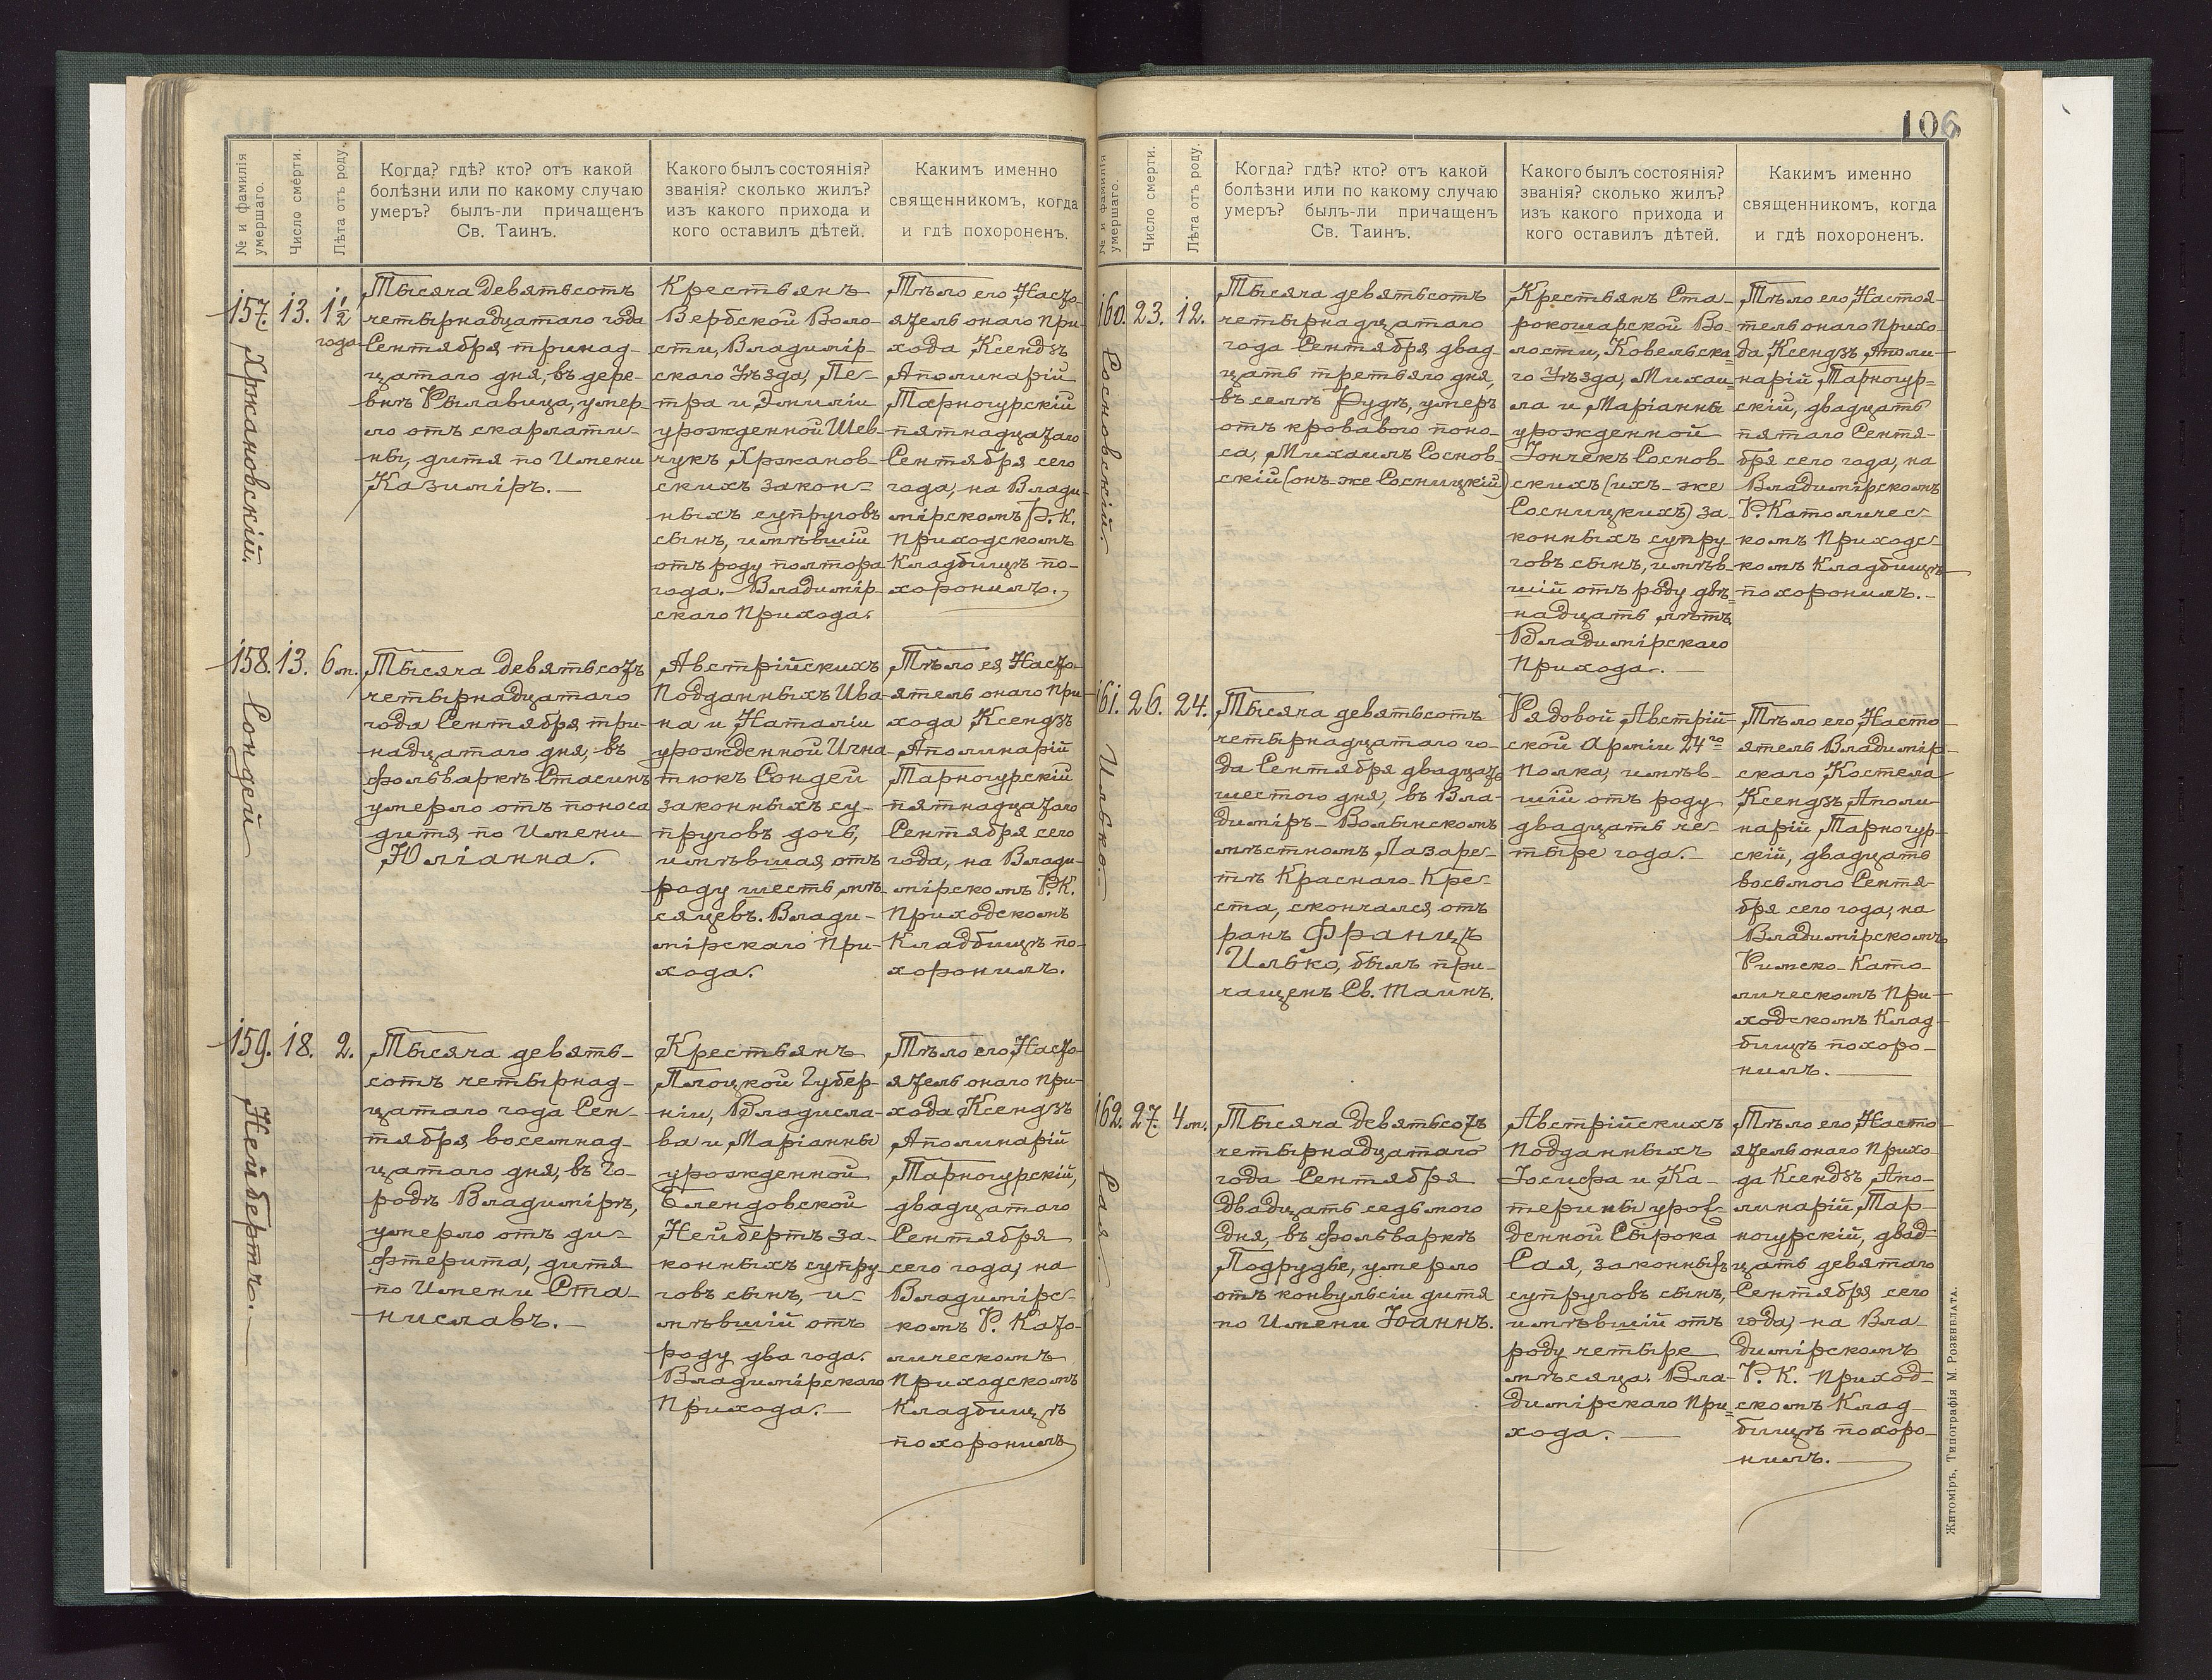 № и фамилія умершаго.
Число смерти.
Лѣта отъ роду.
Когда? гдѣ? кто? отъ какой
болѣзни или по какому случаю
умеръ? былъ-ли причащенъ
Св. Таинъ.
Какого былъ состоянія?
званія? сколько жилъ?
изъ какого прихода и
кого оставилъ дѣтей.
Какимъ именно
священникомъ, когда
и гдѣ похороненъ.
157.
Хржановскій.
13.
1½
года
Тысяча девятьсотъ
четырнадцатаго года
Сентября тринад-
цатаго дня, въ дере-
внѣ Рылавица, умер-
ло отъ скарлати-
ны, дитя по Имени
Казиміръ. —
Крестьянъ
Вербской Воло-
сти, Владимір-
скаго Уѣзда, Пе-
тра и Эмиліи
урожденной Шев-
чукъ Хржанов-
скихъ закон-
ныхъ супруговъ
сынъ, имѣвшій
отъ роду полтора
года. Владимір-
скаго Прихода.
Тѣло его Насто-
ятель онаго При-
хода Ксендзъ
Аполинарій
Тарногурскій
пятнадцатаго
Сентября сего
года, на Влади-
мірскомъ Р. К.
Приходскомъ
Кладбищѣ по-
хоронилъ.
158.
Сондей
13.
6 м.
Тысяча девятьсотъ
четырнадцатаго
года Сентября три-
надцатаго дня, въ
фольваркѣ Стасинъ
умерло отъ поноса
дитя, по Имени
Юліанна.
Австрійскихъ
Подданныхъ Ива-
на и Наталіи
урожденной Игна-
тюкъ Сондей
законныхъ су-
пруговъ дочь,
имѣвшая, отъ
роду шесть, мѣ-
сяцевъ. Влади-
мірскаго При-
хода.
Тѣло ея Насто-
ятель онаго При-
хода Ксендзъ
Аполинарій
Тарногурскій
пятнадцатаго
Сентября сего
года, на Влади-
мірскомъ Р. К.
Приходскомъ
Кладбищѣ по-
хоронилъ.
159.
Нейбертъ. —
18.
2.
Тысяча девять-
сотъ четырнад-
цатаго года Сен-
тября восемнад-
цатаго дня, въ Го-
родѣ Владимірѣ,
умерло отъ ди-
фтерита, дитя
по Имени Ста-
ниславъ. —
Крестьянъ
Плоцкой Губер-
ніи, Владисла-
ва и Маріанны
урожденной
Блендовской
Нейбертъ за-
конныхъ супру-
говъ сынъ, и-
мѣвшій отъ
роду два года.
Владимірскаго
Прихода. —
Тѣло его Насто-
ятель онаго При-
хода Ксендзъ
Аполинарій
Тарногурскій,
двадцатаго
Сентября
сего года, на
Владимірс-
комъ Р. Като-
лическомъ
Приходскомъ
Кладбищѣ
похоронилъ
106
№ и фамилія умершаго.
Число смерти.
Лѣта отъ роду.
Когда? гдѣ? кто? отъ какой
болѣзни или по какому случаю
умеръ? былъ-ли причащенъ
Св. Таинъ.
Какого былъ состоянія?
званія? сколько жилъ?
изъ какого прихода и
кого оставилъ дѣтей.
Какимъ именно
священникомъ, когда
и гдѣ похороненъ.
160.
Сосновскій.
23.
12.
Тысяча девятьсотъ
четырнадцатаго
года Сентября двад-
цать третьяго дня,
въ селѣ Рудѣ, умеръ
отъ кроваваго поно-
са, Михаилъ Соснов-
скій (онъ-же Сосницкій)
Крестьянъ Ста-
рокошарской Во-
лости, Ковельска-
го Уѣзда, Михаи-
ла и Маріанны
урожденной
Іончекъ Соснов-
скихъ (ихъ-же
Сосницкихъ) за-
конныхъ супру-
говъ сынъ, имѣв-
шій отъ роду двѣ-
надцать лѣтъ
Владимірскаго
Прихода. —
Тѣло его, Настоя-
тель онаго Прихо-
да Ксендзъ Аполи-
нарій Тарногур-
скій, двадцать
пятаго Сентя-
бря сего года, на
Владимірскомъ
Р. Католичес-
комъ Приходс-
комъ Кладбищѣ
похоронилъ. —
161.
Илько. —
26.
24.
Тысяча девятьсотъ
четырнадцатаго го-
да Сентября двадцать
шестого дня, въ Вла-
диміръ-Волынскомъ
мѣстномъ Лазаре-
тѣ Краснаго-Кре-
ста, скончался отъ
ранъ Францъ
Илько, былъ при-
чащенъ Св. Таинъ.
Рядовой Австрій-
ской Арміи 24го
полка, имѣв-
шій отъ роду
двадцать че-
тыре года. —
Тѣло его, Насто-
ятель Владимір-
скаго Костела
Ксендзъ Аполи-
нарій Тарногур-
скій, двадцать
восьмого Сентя-
бря сего года, на
Владимірскомъ
Римско-Като-
лическомъ При-
ходскомъ Клад-
бищѣ похоро-
нилъ. —
162.
Сая.
27.
4 м.
Тысяча девятьсотъ
четырнадцатаго
года Сентября
двадцать седьмого
дня, въ фольваркѣ
Подрудье, умерло
отъ конвульсіи дитя
по Имени Іоаннъ.
Австрійскихъ
Подданныхъ
Іосифа и Ка-
терины урож-
денной Сырока
Сая, законныхъ
супруговъ сынъ,
имѣвшій отъ
роду четыре
мѣсяца. Вла-
димірскаго При-
хода. —
Тѣло его, Насто-
ятель онаго Прихо-
да Ксендзъ Апо-
линарій Тар-
ногурскій, двад-
цать девятаго
Сентября сего
года, на Вла-
димірскомъ
Р. К. Приход-
скомъ Клад-
бищѣ похоро-
нилъ. —
Житоміръ, Типографія М. Розенблата.